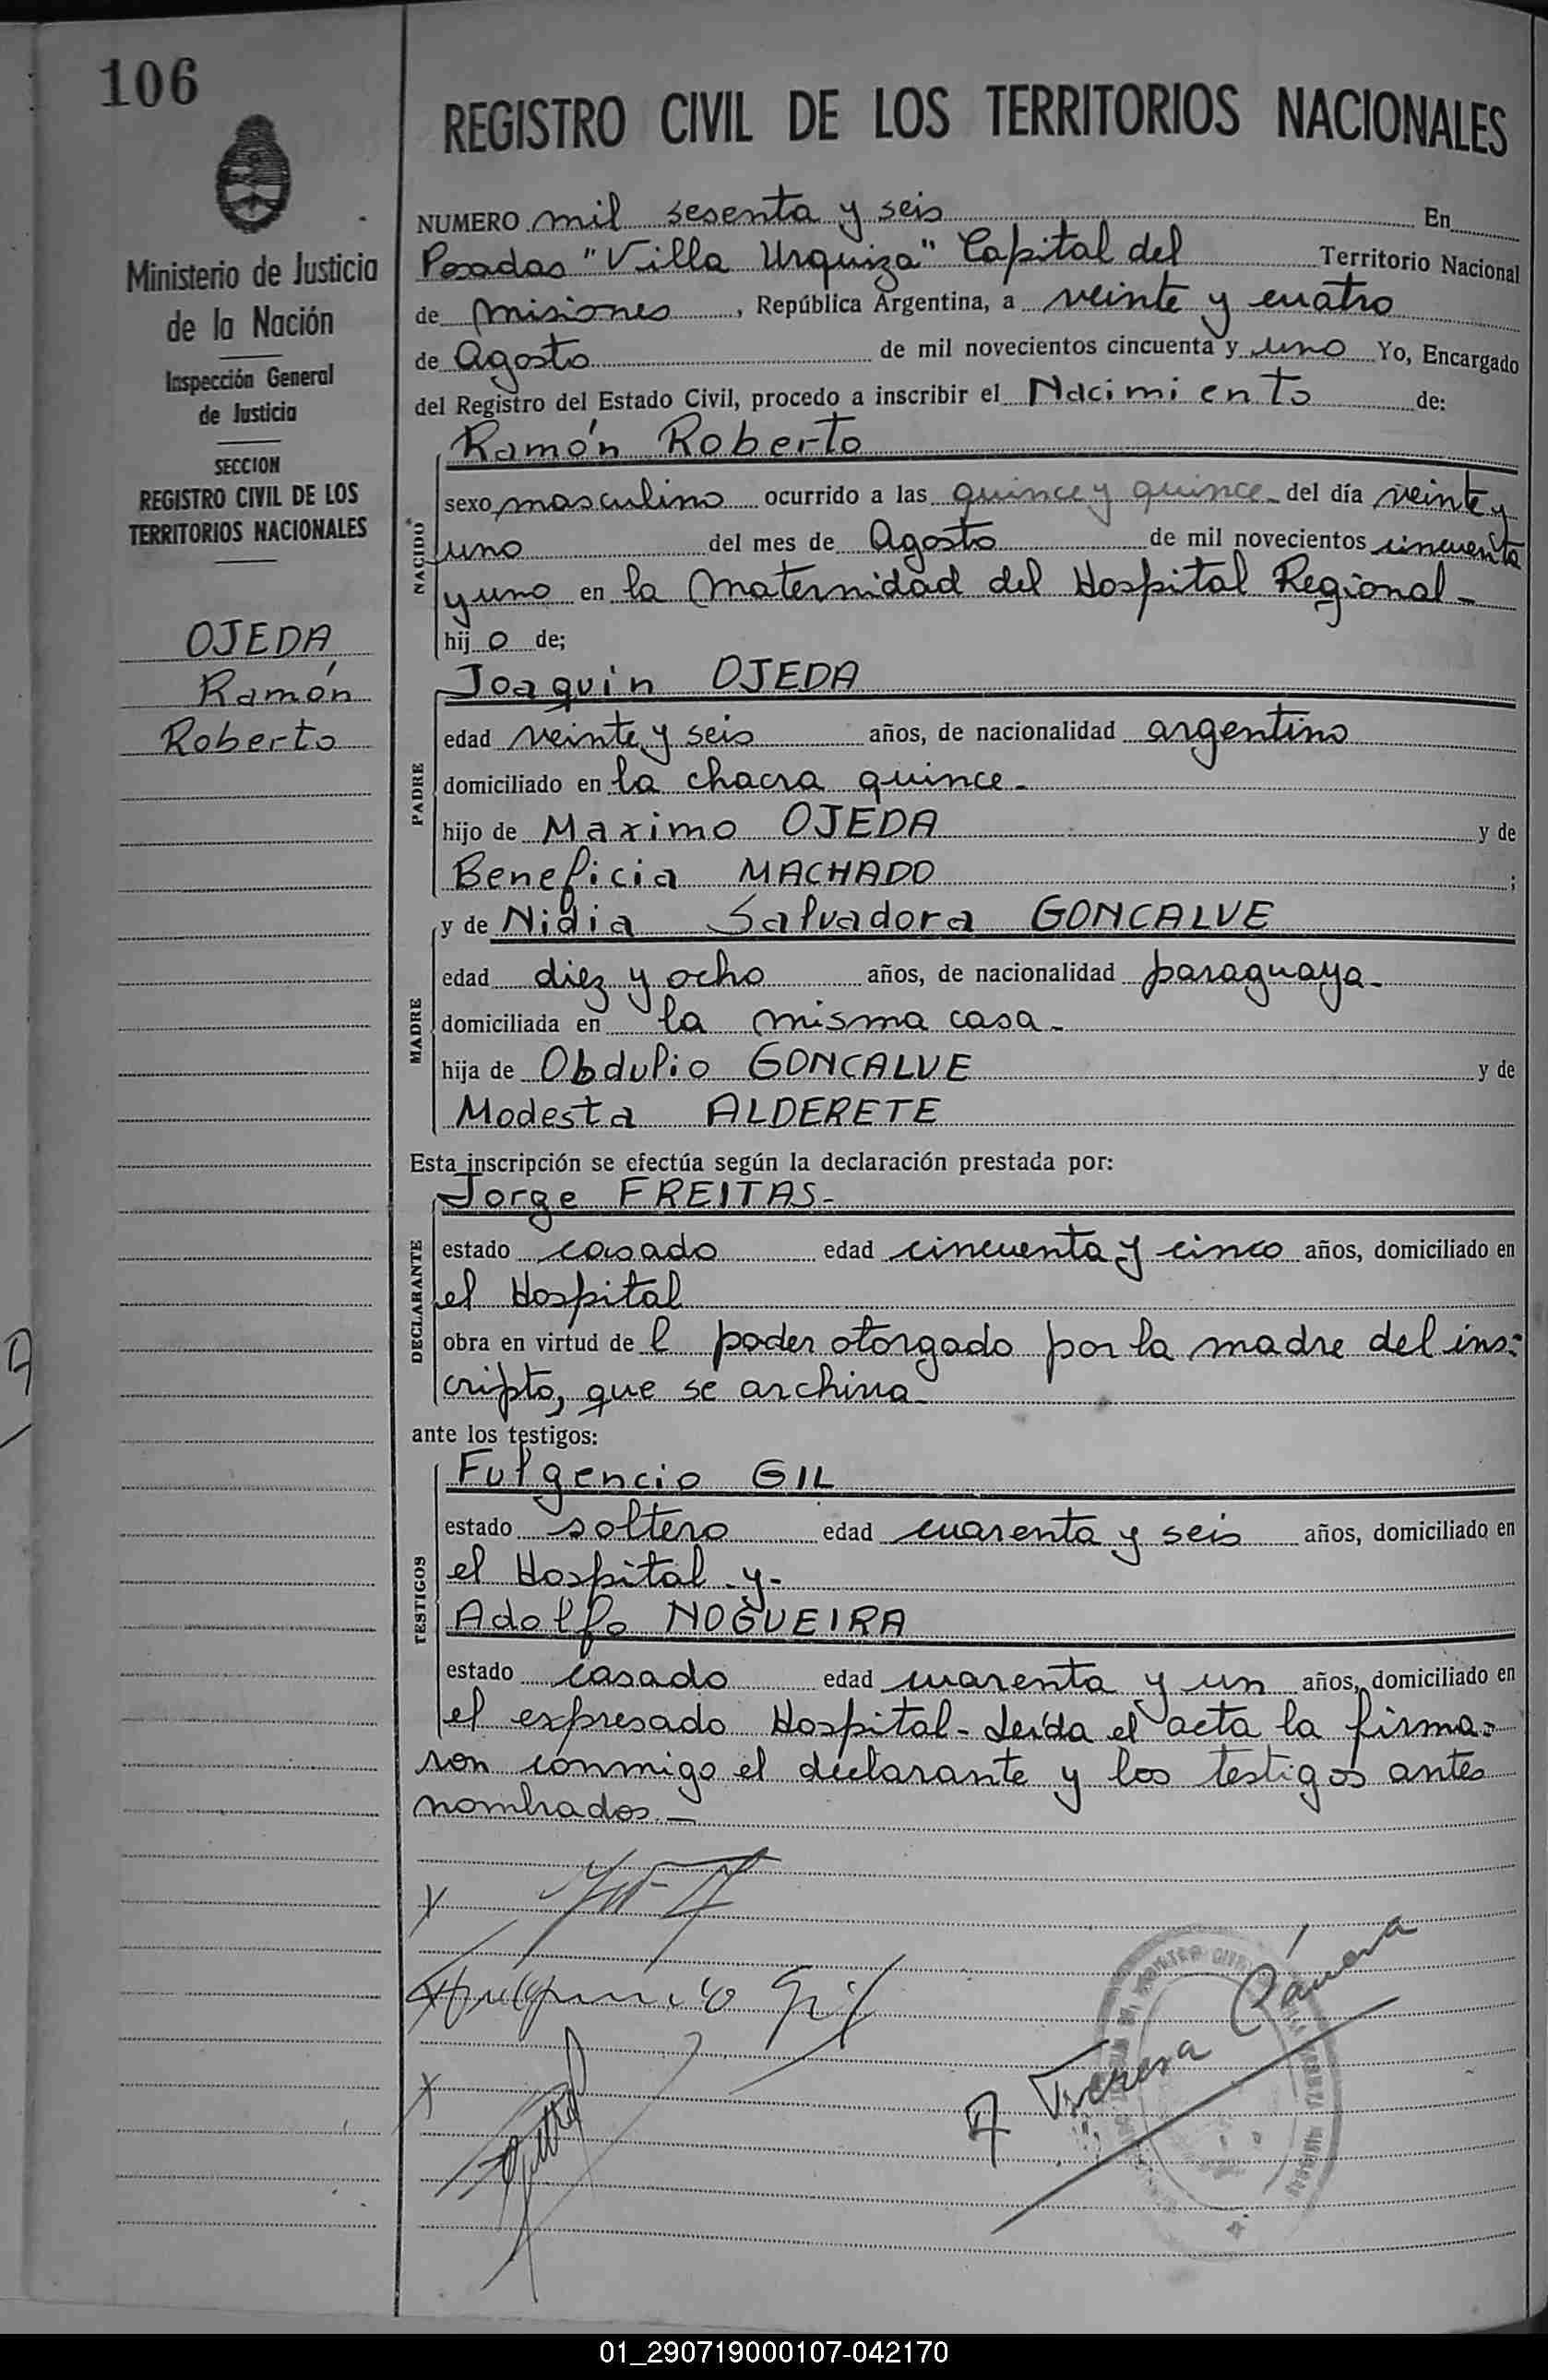 106
Ministerio de Justicia
de la Nación
Inspección General
de Justicia
SECCION
REGISTRO CIVIL DE LOS
TERRITORIOS NACIONALES
OJEDA
Ramón
Roberto
REGISTRO CIVIL DE LOS TERRITORIOS NACIONALES
NUMERO mil sesenta y seis En
Posadas "Villa Urquiza" Capital del Territorio Nacional
de misiones, República Argentina, a veinte y cuatro
de Agosto de mil novecientos cincuenta y uno Yo, Encargado
del Registro del Estado Civil, procedo a inscribir el Nacimiento de:
Ramón Roberto
NACIDO
sexo masculino ocurrido a las quince y quince del día veinte y
uno del mes de Agosto de mil novecientos cincuenta
y uno en la maternidad del Hospital Regional-
hijo de;
Joaquin OJEDA
PADRE
edad veinte y seis años, de nacionalidad argentino
domiciliado en la chacra quince-
hijo de Maximo OJEDA y de
Beneficia MACHADO ;
y de Nidia Salvadora GONCALVE
MADRE
edad diez y ocho años, de nacionalidad paraguaya-
domiciliada en la misma casa-
hija de Obdulio GONCALVE y de
Modesta ALDERETE
Esta inscripción se efectúa según la declaración prestada por:
Jorge FREITAS-
DECLARANTE
estado casado edad cincuenta y cinco años, domiciliado en
el Hospital
obra en virtud de l poder otorgado por la madre del ins:
cripto, que se archiva
ante los testigos:
Fulgencio GIL
TESTIGOS
estado soltero edad cuarenta y seis años, domiciliado en
el Hospital y-
Adolfo NOGUEIRA
estado casado edad cuarenta y un años, domiciliado en
el expresado Hospital- Leída el acta la firma=
ron conmigo el declarante y los testigos antes
nombrados.-
Fulgencio Gil
A Teresa Cámera
01_290719000107-042170